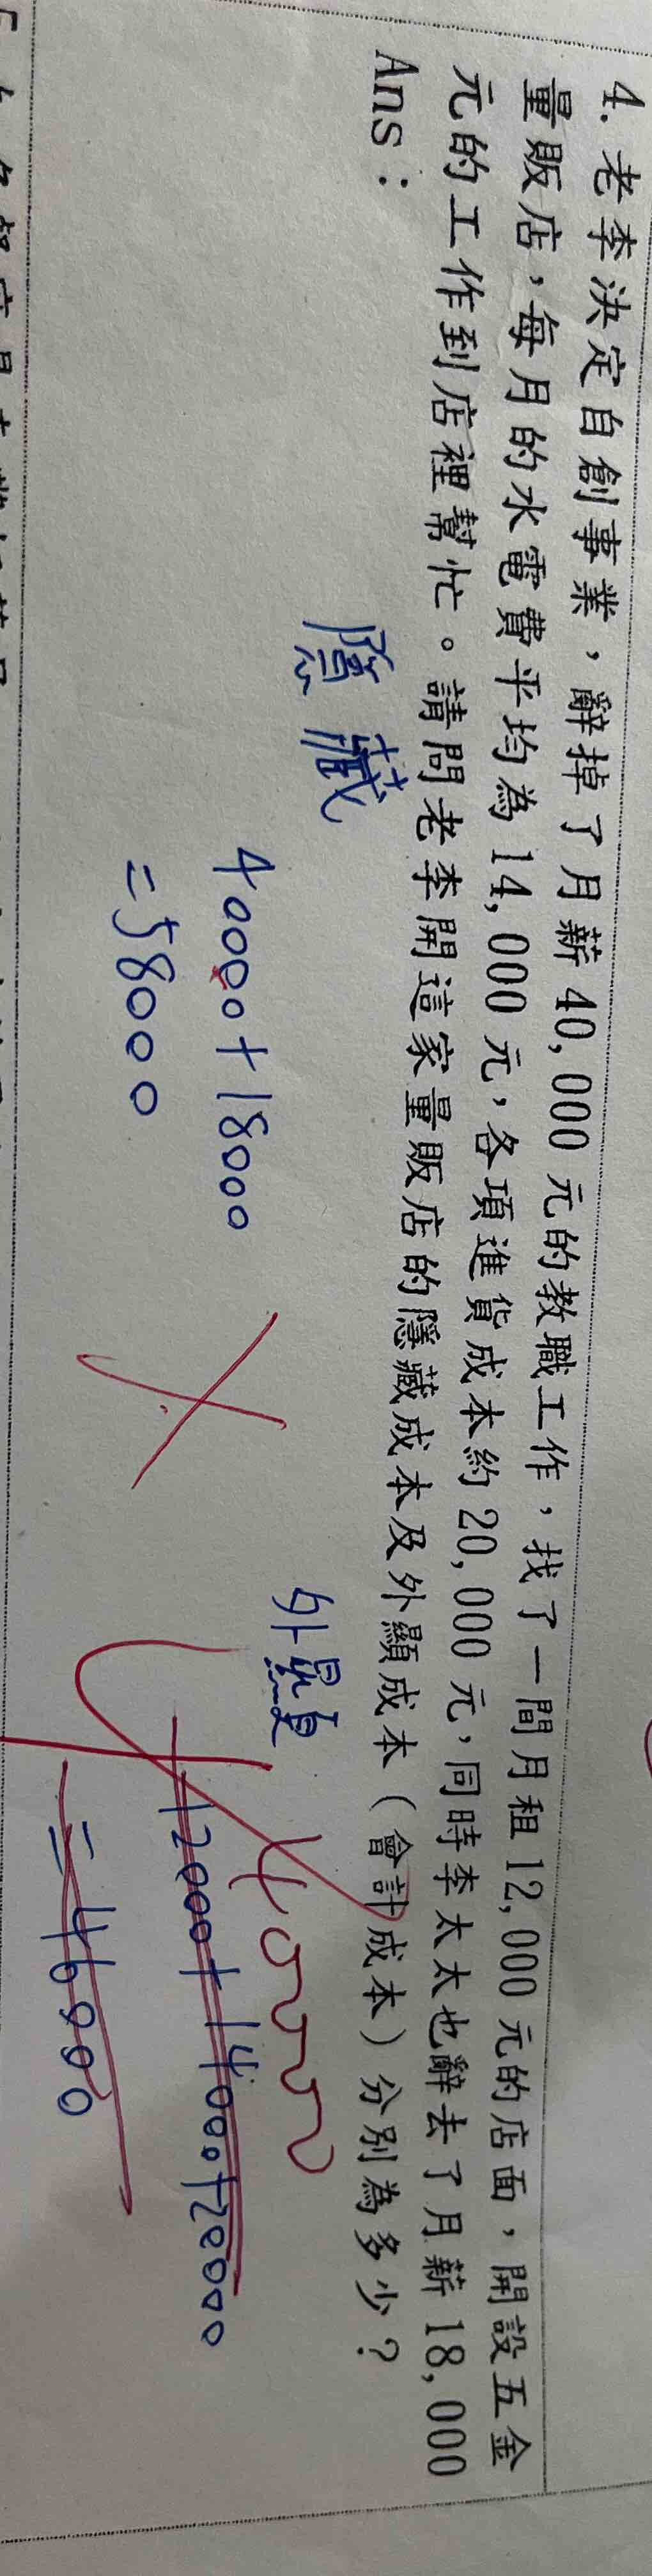 4. 老李決定自創事業，辭掉了月薪 40,000 元的教職工作，找了一間月租 12,000 元的店面，開設五金
量販店，每月的水電費平均為 14,000 元，各項進貨成本約 20,000 元，同時李太太也辭去了月薪 18,000
元的工作到店裡幫忙。請問老李開這家量販店的隱藏成本及外顯成本（會計成本）分別為多少？
Ans：
隱藏
40000+18000
=58000
外顯
12000+14000+20000
=46000